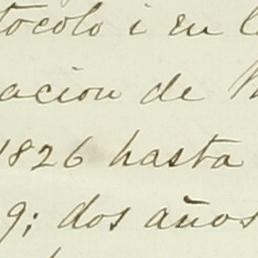 tocolo i en l
acion de
1826 hasta
9; dos años